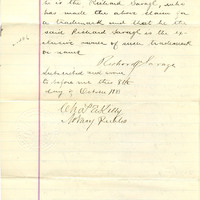 he is the Richard Savage, who
has made the above claim for
a trademark and that he the
said Richard Savage is the ex-
clusive owner of such trademark
or name
Richard Savage
Subscribed and sworn
to before me this 8th
day of October 18
Notary Public